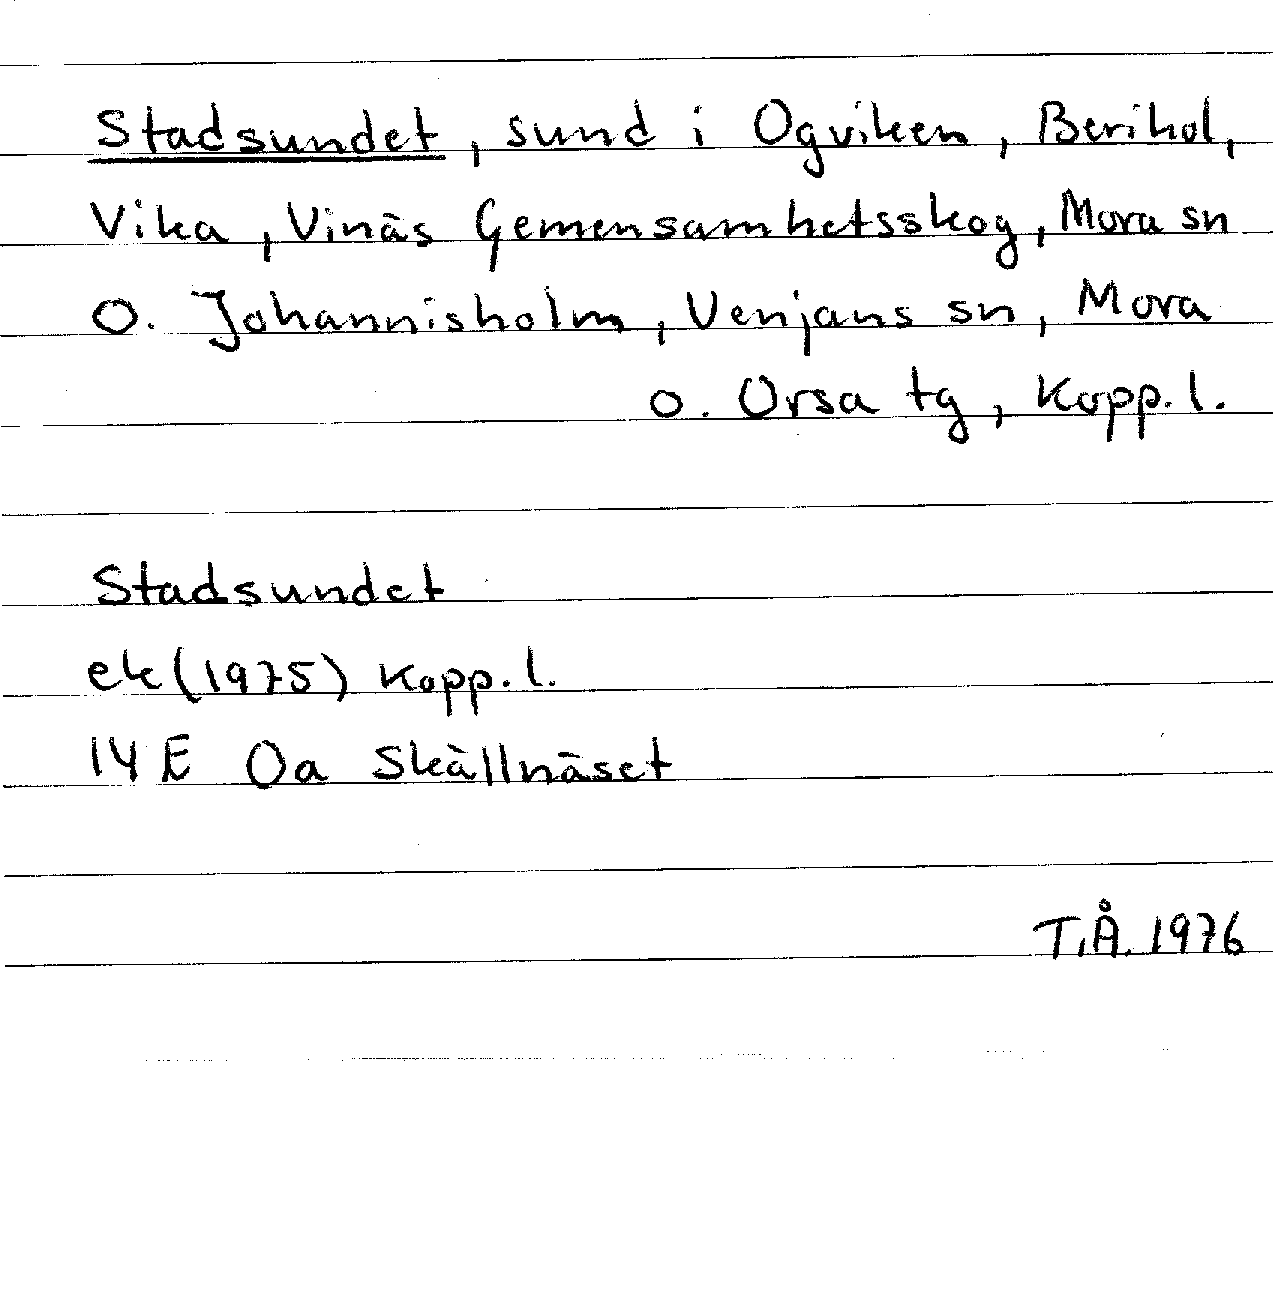 Stadsundet, sund i Ogviken, Berikol,
Vika, Vinäs Gemensamhetsskog, Mora sn
o. Johannisholm, Venjans sn, Mora
o. Orsa tg, Kopp. l.
Stadsundet
ek (1975) Kopp. l.
14 E 0a Skällnäset
T.Å. 1976